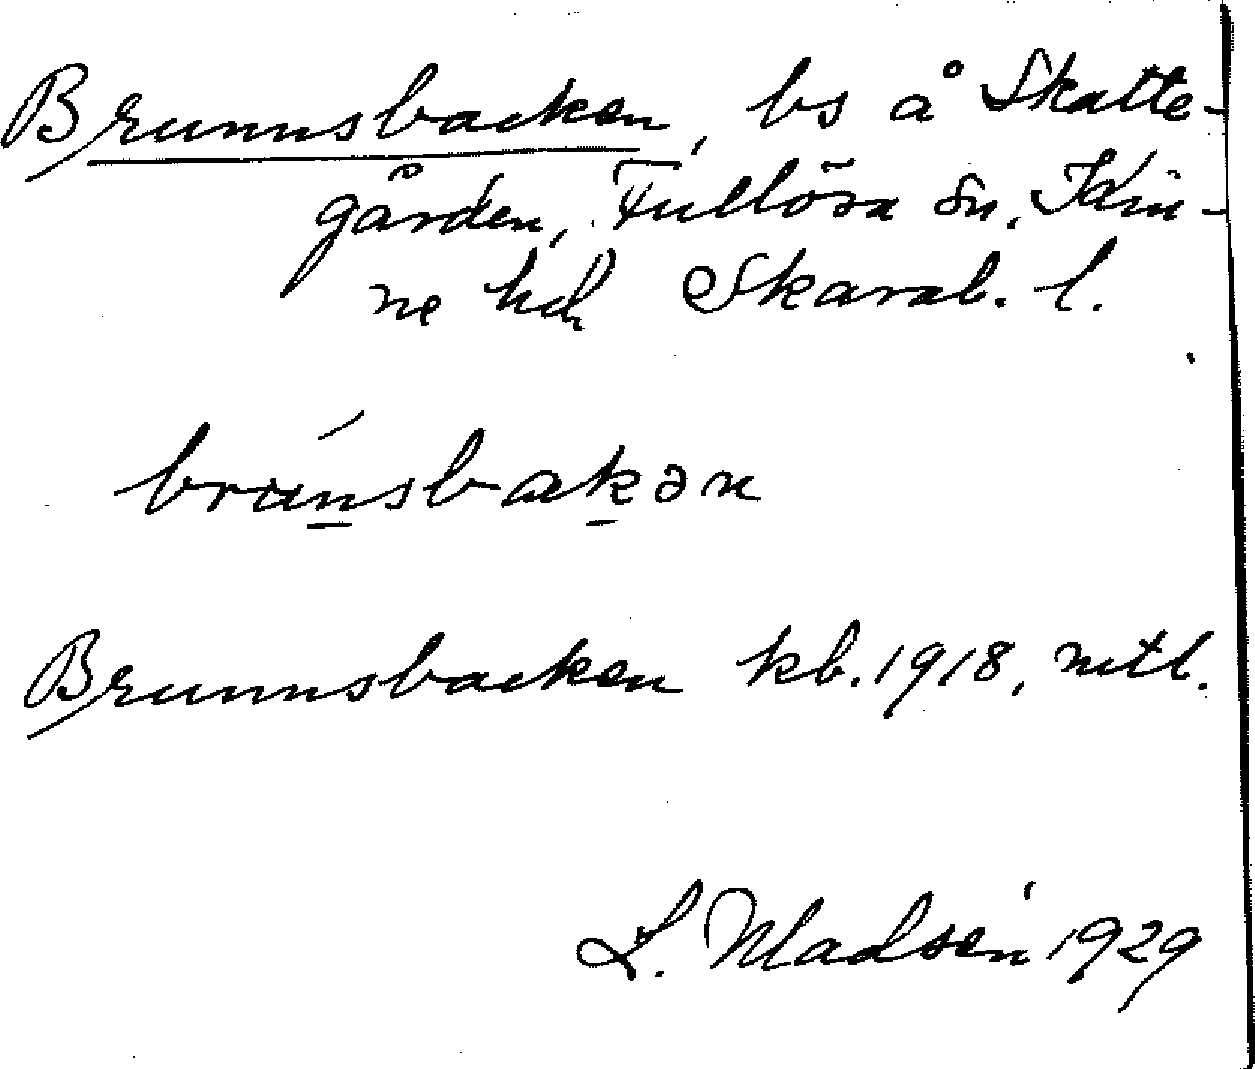 Brunnsbacken, bs å Skatte-
gården, Fullösa sn, Kin-
ne hd Skarab. l.
brúnsbakən
Brunnsbacken kb. 1918, mtl.
L. Madsén 1929